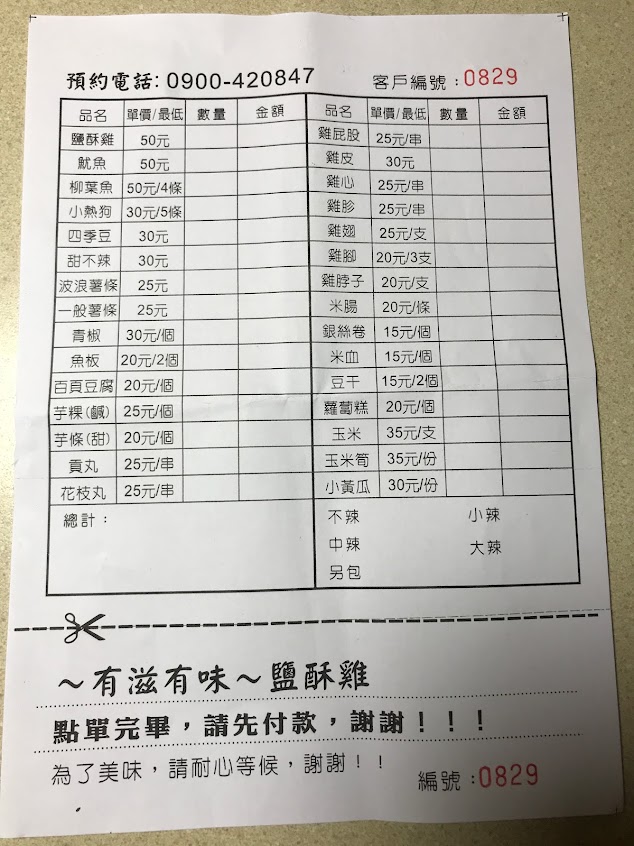 預約電話: 0900-420847 客戶編號:0829
品名 單價/最低 數量 金額 品名 單價/最低 數量 金額
鹽酥雞 50元 雞屁股 25元/串
魷魚 50元 雞皮 30元
柳葉魚 50元/4條 雞心 25元/串
小熱狗 30元/5條 雞胗 25元/串
四季豆 30元 雞翅 25元/支
甜不辣 30元 雞腳 20元/3支
波浪薯條 25元 雞脖子 20元/支
一般薯條 25元 米腸 20元/條
青椒 30元/個 銀絲卷 15元/個
魚板 20元/2個 米血 15元/個
百頁豆腐 20元/個 豆干 15元/2個
芋粿(鹹) 25元/個 蘿蔔糕 20元/個
芋條(甜) 20元/個 玉米 35元/支
貢丸 25元/串 玉米筍 35元/份
花枝丸 25元/串 小黃瓜 30元/份
總計: 不辣 小辣
中辣 大辣
另包
～有滋有味～鹽酥雞
點單完畢,請先付款,謝謝!!!
為了美味,請耐心等候,謝謝!!
編號:0829